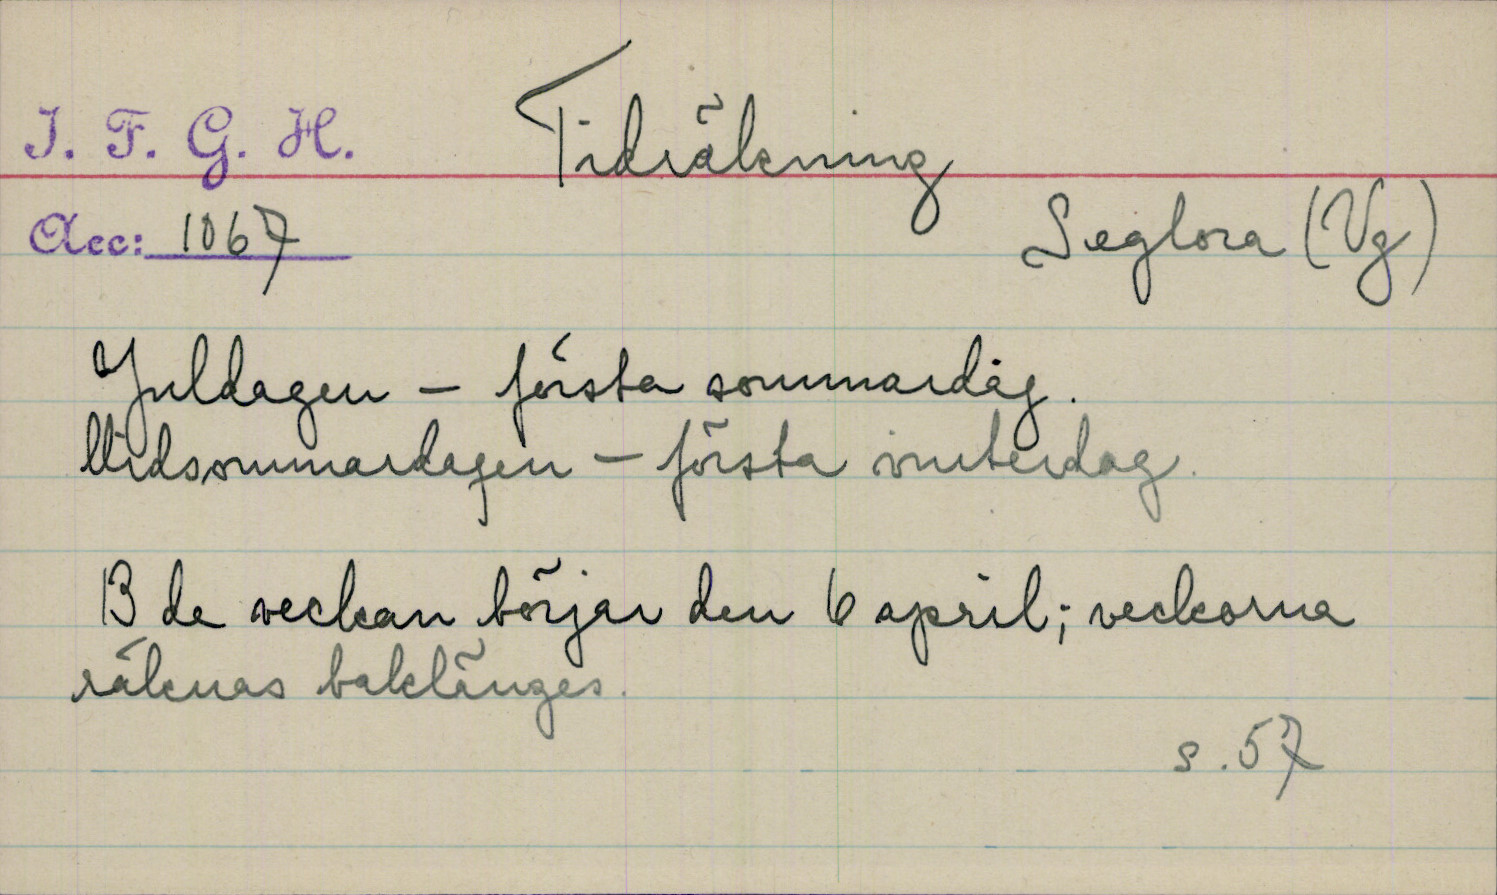 I. F. G. H.
Tidräkning
Acc: 1067
Seglora (Vg)
Juldagen – första sommardag.
Midsommardagen – första vinterdag.
13 de veckan börjar den 6 april; veckorna
räknas baklänges.
s. 57